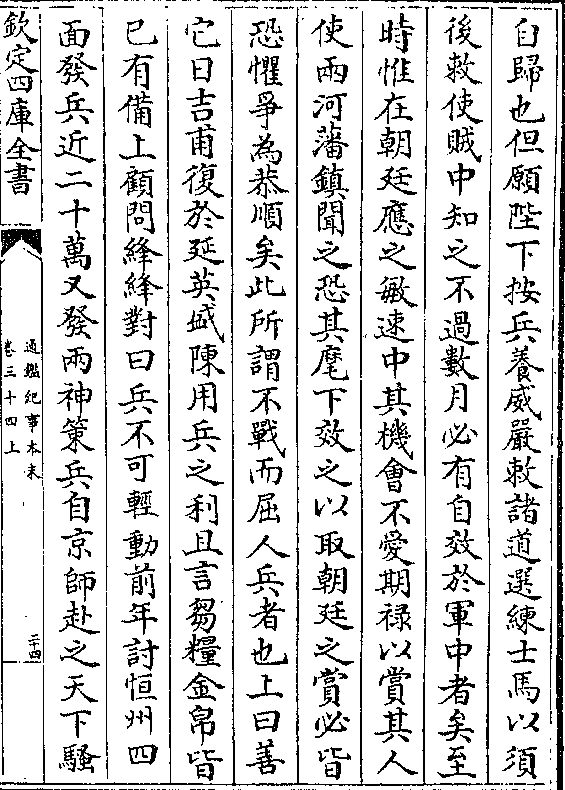 自歸也但願陛下按兵養威嚴敕諸道選練士馬以須
後敕使賊中知之不過數月必有自效於軍中者矣至
時惟在朝廷應之敏速中其機會不愛爵祿以賞其人
使兩河藩鎮聞之恐其麾下效之以取朝廷之賞必皆
恐懼爭為恭順矣此所謂不戰而屈人兵者也上曰善
它日吉甫復於延英盛陳用兵之利且言芻糧金帛皆
已有備上顧問絳絳對曰兵不可輕動前年討恒州四
面發兵近二十萬又發兩神策兵自京師赴之天下騷
欽定四庫全書
通鑑紀事本末
卷三十四上
二十四